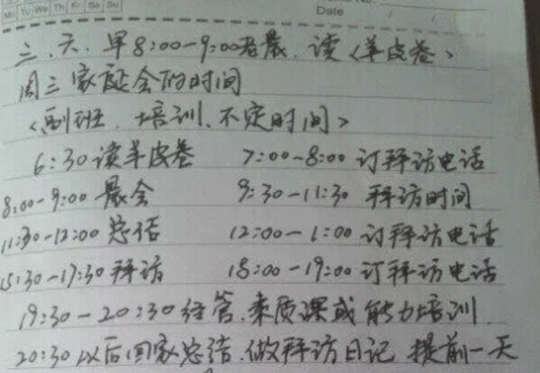 Mo Tu We Th Fr Sa Su
No.
Date
三、六、早8:00-9:00 晨、读《羊皮卷》
周三家庭会的时间
<副班、培训、不定时间>
6:30读羊皮卷 7:00-8:00 订拜访电话
8:00-9:00 晨会 9:30-11:30 拜访时间
11:30-12:00 总结 12:00-1:00 订拜访电话
15:30-17:30 拜访 18:00-19:00 订拜访电话
19:30-20:30 经管、素质课或能力培训
20:30以后回家总结、做拜访日记 提前一天